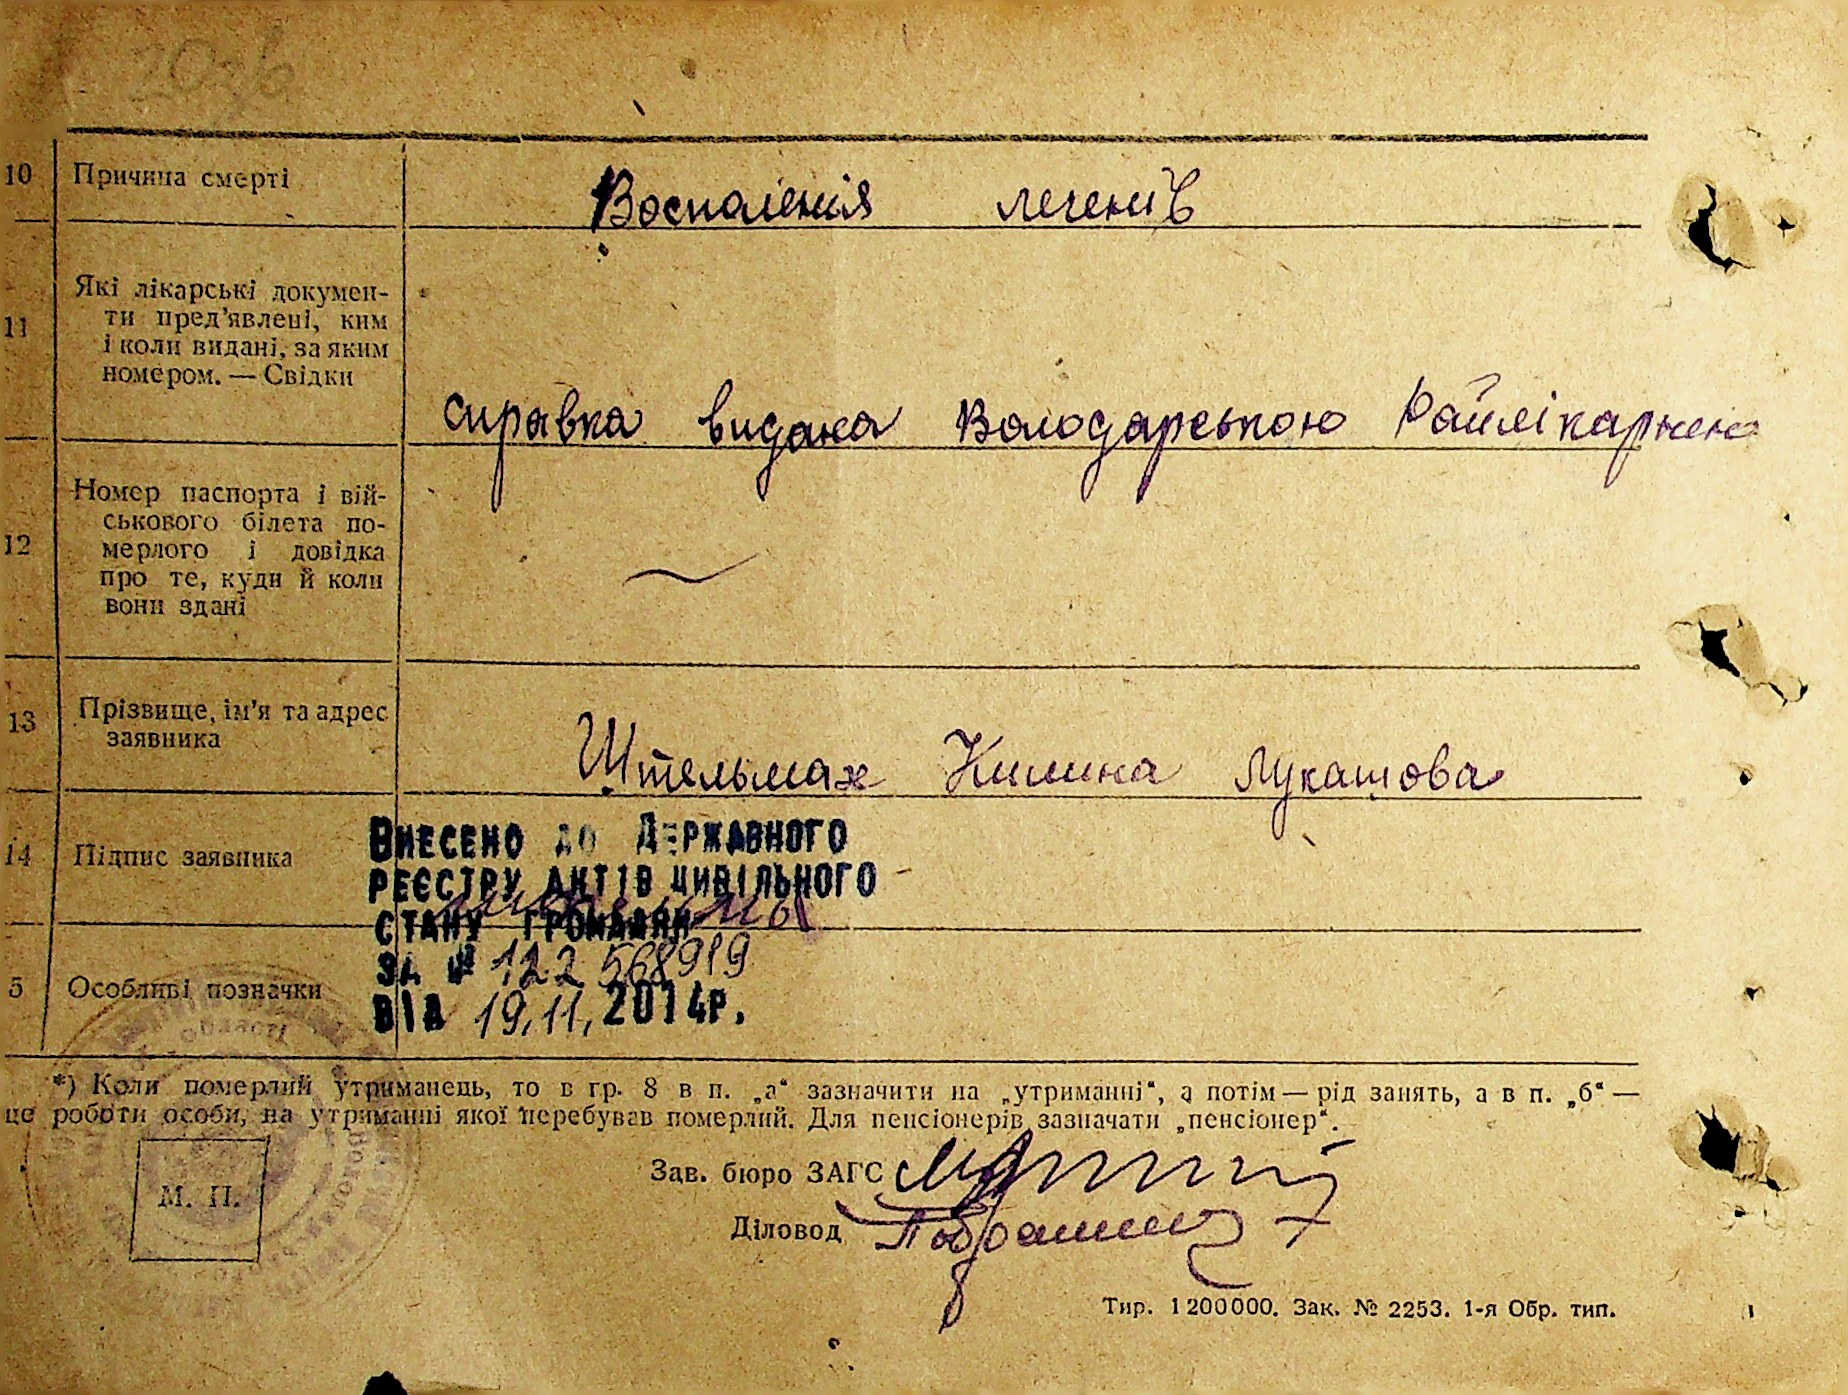 10 Причина смерті Воспаленія легенів
11 Які лікарські докумен-
ти пред'явлені, ким
і коли видані, за яким
номером. — Свідки
справка видана Володарською Райлікарнею
12 Номер паспорта і вій-
ськового білета по-
мерлого і довідка
про те, куди й коли
вони здані
13 Прізвище, ім'я та адрес
заявника
Штельмах Килина Лукашова
14 Підпис заявника
Внесено до Державного
реєстру актів цивільного
стану громадян
за № 122 568919
від 19.11.2014р.
5 Особливі позначки
області
*) Коли померлий утриманець, то в гр. 8 в п. „а“ зазначити на „утриманні“, а потім — рід занять, а в п. „б“ —
це роботи особи, на утриманні якої перебував померлий. Для пенсіонерів зазначати „пенсіонер“.
М. П.
Зав. бюро ЗАГС
Діловод
Тир. 1200000. Зак. № 2253. 1-я Обр. тип.